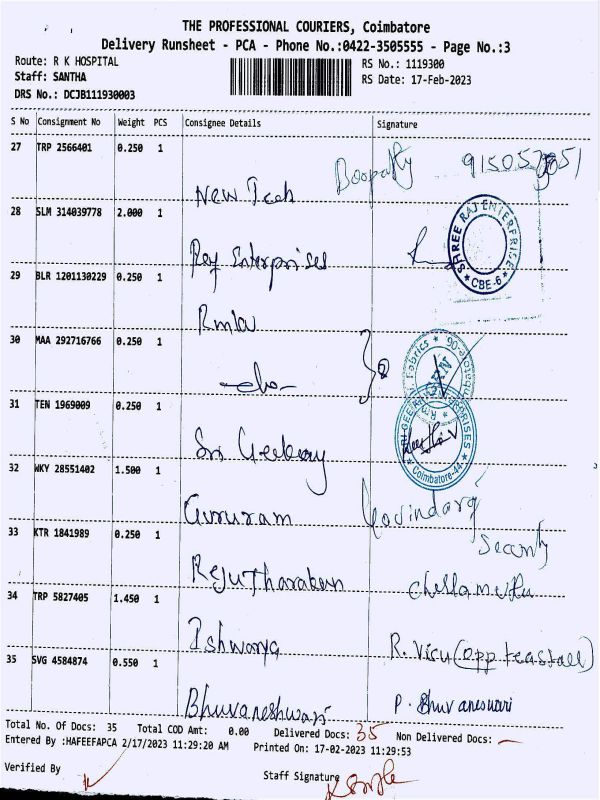 THE PROFESSIONAL COURIERS, Coimbatore
Delivery Runsheet - PCA - Phone No.:0422-3505555 - Page No.:3
Route: R K HOSPITAL RS No.: 1119300
Staff: SANTHA RS Date: 17-Feb-2023
DRS No.: DCJB111930003
S No Consignment No Weight PCS Consignee Details Signature
27 TRP 2566401 0.250 1 New Tech
28 SLM 314039778 2.000 1 Raj Enterprises SHREE RAJ ENTERPRISE CBE-6
29 BLR 1201130229 0.250 1
30 MAA 292716766 0.250 1 -do- Fabrics
31 TEN 1969009 0.250 1 Sri Coimbatore-44
32 WKY 28551402 1.500 1 Gururam Govindaraj Security
33 KTR 1841989 0.250 1 Reju Tharakan Chellamuthu
34 TRP 5827405 1.450 1 Ishwarya R. Viru (opp teastall)
35 SVG 4584874 0.550 1 Bhuvaneshwari P. Bhuvaneswari
Total No. Of Docs: 35 Total COD Amt: 0.00 Delivered Docs: 35 Non Delivered Docs: —
Entered By :HAFEEFAPCA 2/17/2023 11:29:20 AM Printed On: 17-02-2023 11:29:53
Verified By Staff Signature